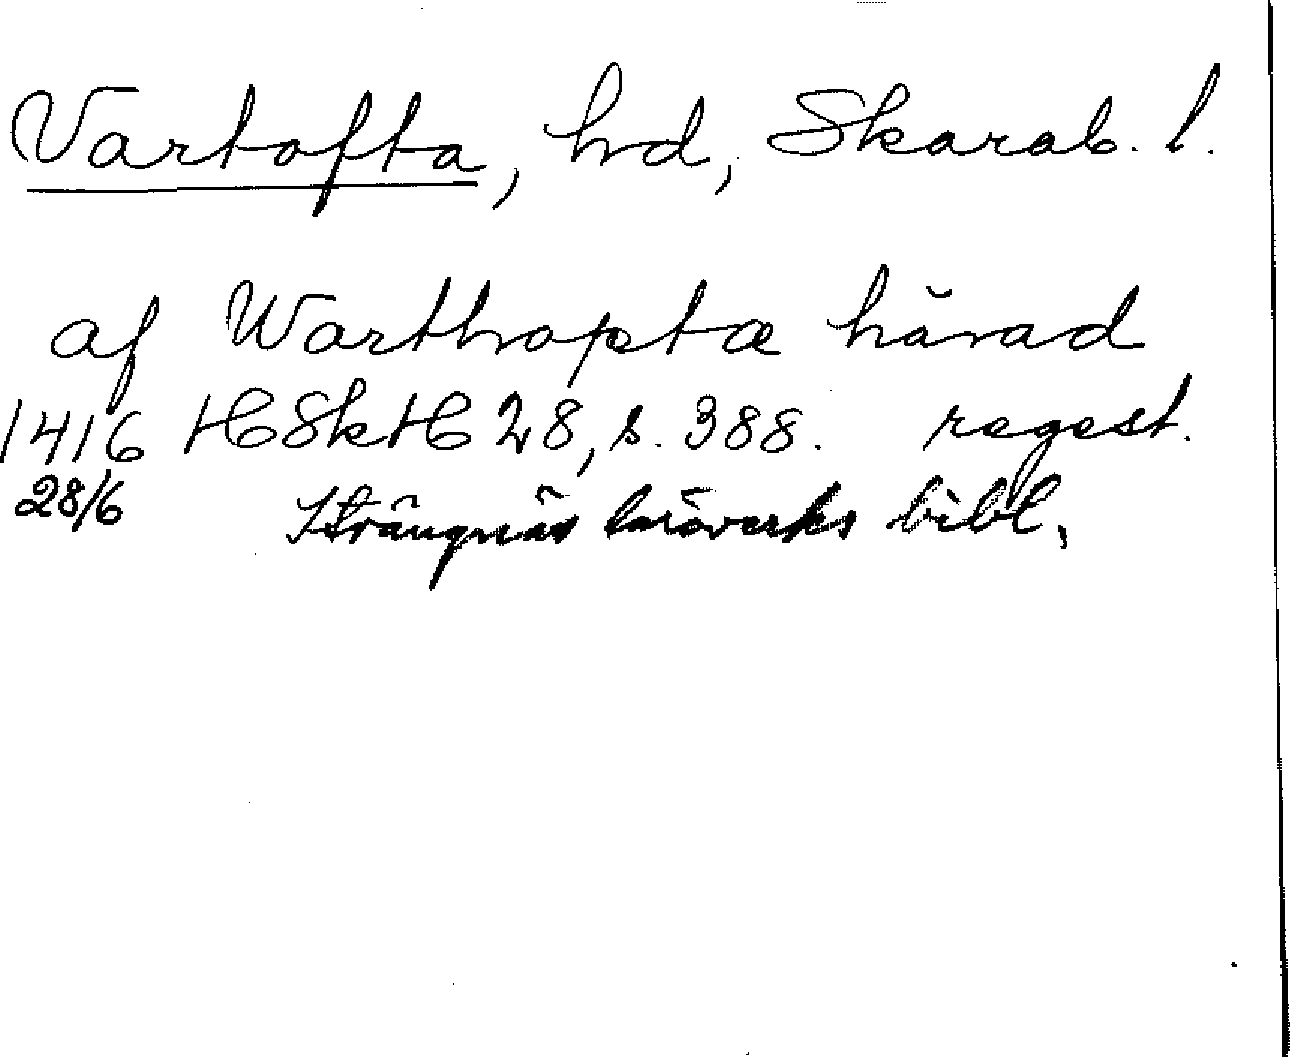 Vartofta, hd, Skarab. l.
af Warthoptæ härad
1416 HSkH 28, s. 388. regest.
28/6 Strängnäs läroverks bibl.